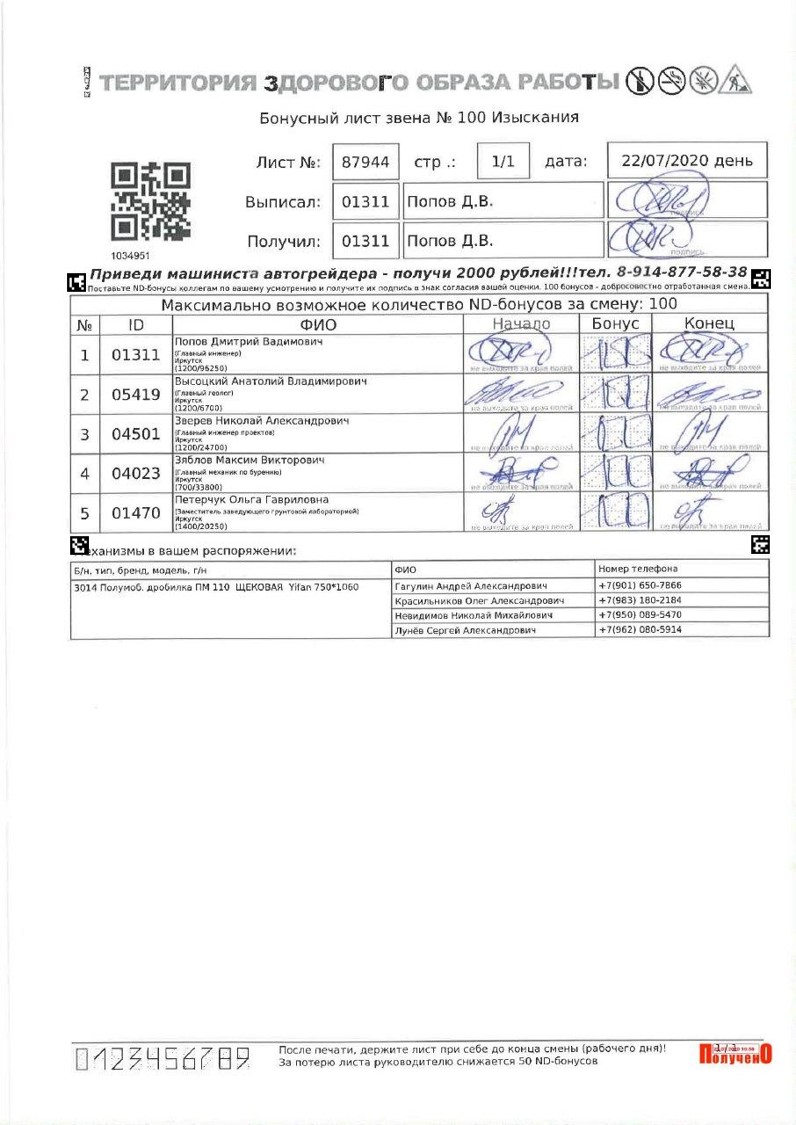 ТЕРРИТОРИЯ ЗДОРОВОГО ОБРАЗА РАБОТЫ
Бонусный лист звена № 100 Изыскания
Лист №: 87944 стр .: 1/1 дата: 22/07/2020 день
Выписал: 01311 Попов Д.В. подпись
Получил: 01311 Попов Д.В. подпись
1034951
Приведи машиниста автогрейдера - получи 2000 рублей!!!тел. 8-914-877-58-38
Поставьте ND-бонусы коллегам по вашему усмотрению и получите их подпись в знак согласия вашей оценки. 100 бонусов - добросовестно отработанная смена.
Максимально возможное количество ND-бонусов за смену: 100
№ ID ФИО Начало Бонус Конец
1 01311 Попов Дмитрий Вадимович 100
(Главный инженер)
Иркутск
(1200/96250)
не выходите за края полей не выходите за края полей
2 05419 Высоцкий Анатолий Владимирович 100
(Главный геолог)
Иркутск
(1200/6700)
не выходите за края полей не выходите за края полей
3 04501 Зверев Николай Александрович 100
(Главный инженер проектов)
Иркутск
(1200/24700)
не выходите за края полей не выходите за края полей
4 04023 Зяблов Максим Викторович 100
(Главный механик по бурению)
Иркутск
(700/33800)
не выходите за края полей не выходите за края полей
5 01470 Петерчук Ольга Гавриловна 100
(Заместитель заведующего грунтовой лабораторией)
Иркутск
(1400/20250)
не выходите за края полей не выходите за края полей
еханизмы в вашем распоряжении:
Б/н, тип, бренд, модель, г/н ФИО Номер телефона
3014 Полумоб. дробилка ПМ 110 ЩЕКОВАЯ Yifan 750*1060 Гагулин Андрей Александрович +7(901) 650-7866
Красильников Олег Александрович +7(983) 180-2184
Невидимов Николай Михайлович +7(950) 089-5470
Лунёв Сергей Александрович +7(962) 080-5914
0123456789
После печати, держите лист при себе до конца смены (рабочего дня)!
За потерю листа руководителю снижается 50 ND-бонусов
1/1
Получено